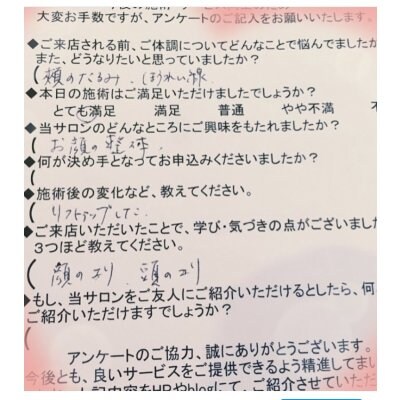 大変お手数ですが、アンケートのご記入をお願いいたします。
◆ご来店される前、ご体調についてどんなことで悩んでましたか
また、どうなりたいと思っていましたか?
(頬のたるみ、ほうれい線
◆本日の施術はご満足いただけましたでしょうか?
とても満足 満足 普通 やや不満 不
◆当サロンのどんなところにご興味をもたれましたか?
(お顔の整体
◆何が決め手となってお申込みくださいましたか?
(
◆施術後の変化など、教えてください。
(リフトアップした。
◆ご来店いただいたことで、学び・気づきの点がございました
3つほど教えてください。
(顔のコリ、頭のコリ
◆もし、当サロンをご友人にご紹介いただけるとしたら、何
ご紹介いただけますでしょうか?
(
アンケートのご協力、誠にありがとうございます。
今後とも、良いサービスをご提供できるよう精進してまい
記内容をHPやblogにて、ご紹介させていただ